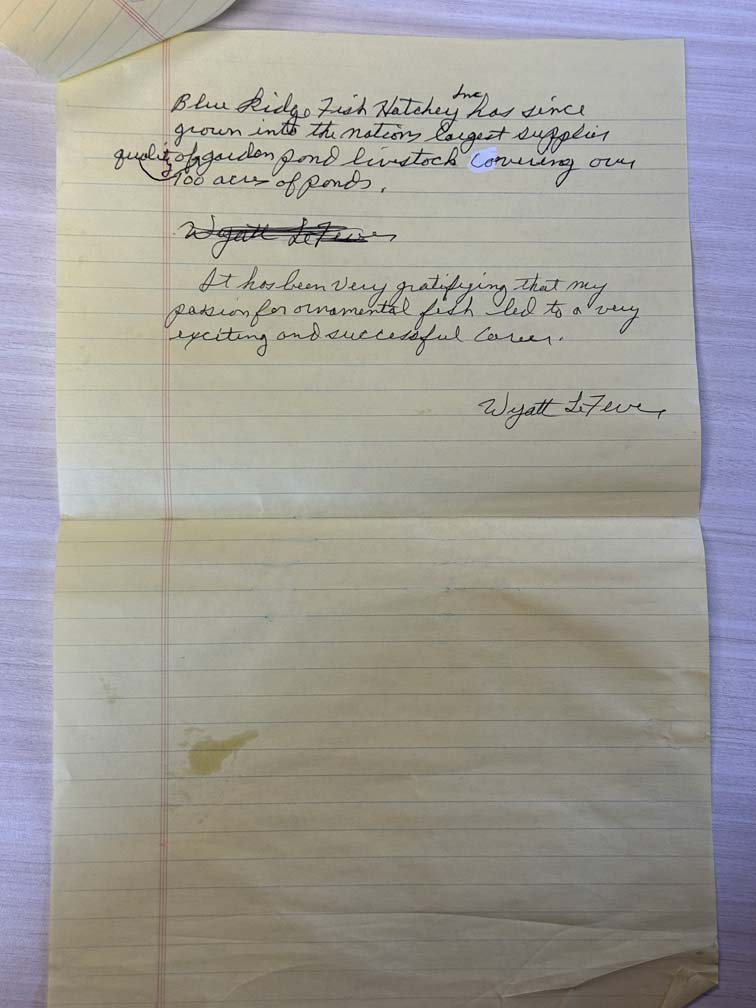 Inc
Blue Ridge Fish Hatchey has since
grown into the nations largest supplier
quality of garden pond livestock covering over
700 acres of ponds.
Wyatt LeFever
It has been very gratifying that my
passion for ornamental fish led to a very
exciting and successful career.
Wyatt LeFever